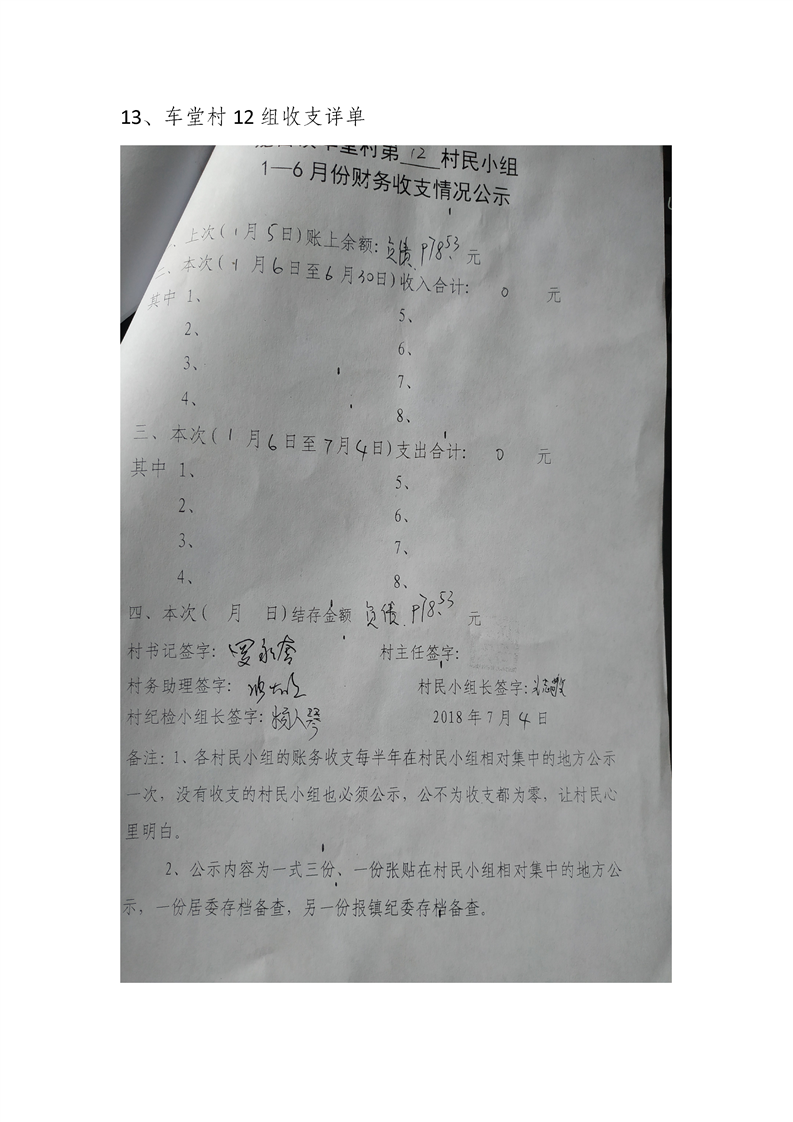 13、车堂村 12 组收支详单
车堂村第 12 村民小组
1—6月份财务收支情况公示
、上次(1月5日)账上余额: 负债 元
二、本次(1月6日至6月30日)收入合计: 0 元
其中 1、 5、
2、 6、
3、 7、
4、 8、
三、本次(1月6日至7月4日)支出合计: 0 元
其中 1、 5、
2、 6、
3、 7、
4、 8、
四、本次( 月 日)结存金额 负债 元
村书记签字: 村主任签字:
村务助理签字: 村民小组长签字:
村纪检小组长签字: 2018年7月4日
备注:1、各村民小组的账务收支每半年在村民小组相对集中的地方公示
一次,没有收支的村民小组也必须公示,公不为收支都为零,让村民心
里明白。
2、公示内容为一式三份、一份张贴在村民小组相对集中的地方公
示,一份居委存档备查,另一份报镇纪委存档备查。